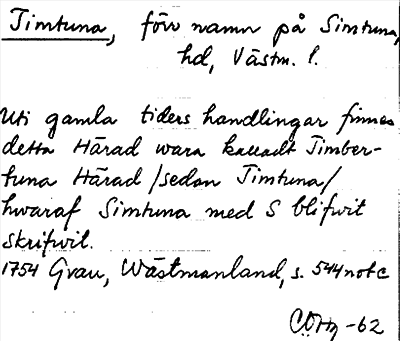 Timtuna, förr namn på Simtuna,
hd, Västm. l.
Uti gamla tiders handlingar finnes
detta Härad wara kalladt Timber-
tuna Härad /sedan Timtuna/
hwaraf Simtuna med S blifwit
skrifwit.
1754 Grau, Wästmanland, s. 544 note
-62